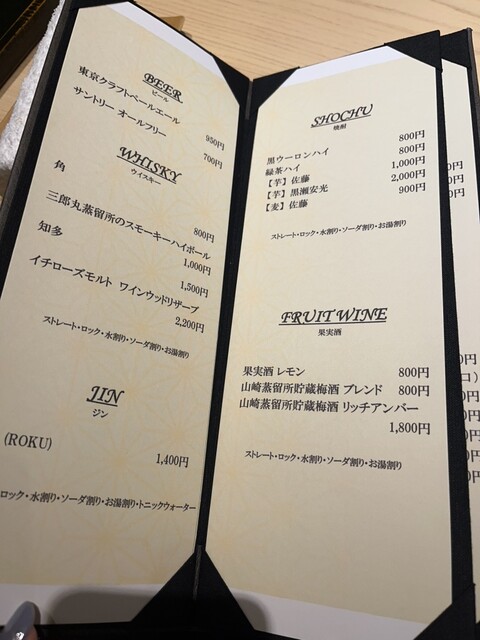 BEER
ビール
東京クラフトペールエール
950円
サントリー オールフリー
700円
WHISKY
ウイスキー
角
800円
三郎丸蒸留所のスモーキーハイボール
1,000円
知多
1,500円
イチローズモルト ワインウッドリザーブ
2,200円
ストレート・ロック・水割り・ソーダ割り・お湯割り
JIN
ジン
(ROKU)
1,400円
ロック・水割り・ソーダ割り・お湯割り・トニックウォーター
SHOCHU
焼酎
黒ウーロンハイ 800円
緑茶ハイ 800円
【芋】佐藤 1,000円
【芋】黒瀬安光 2,000円
【麦】佐藤 900円
ストレート・ロック・水割り・ソーダ割り・お湯割り
FRUIT WINE
果実酒
果実酒 レモン 800円
山崎蒸留所貯蔵梅酒 ブレンド 800円
山崎蒸留所貯蔵梅酒 リッチアンバー
1,800円
ストレート・ロック・水割り・ソーダ割り・お湯割り